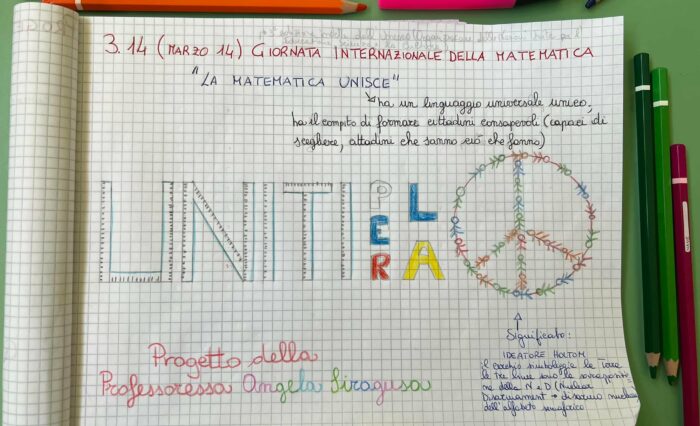 3.14 (MARZO 14) GIORNATA INTERNAZIONALE DELLA MATEMATICA
"LA MATEMATICA UNISCE"
ha un linguaggio universale unico,
ha il compito di formare cittadini consapevoli (capaci di
scegliere, cittadini che sanno ciò che fanno)
UNITI PER LA
Progetto della
Professoressa Angela Siragusa
Significato:
IDEATORE HOLTOM
il cerchio simboleggia la Terra
le tre linee sono la
ne della N e D (Nuclear
Disarmament → disarmo
dell'alfabeto semaforico